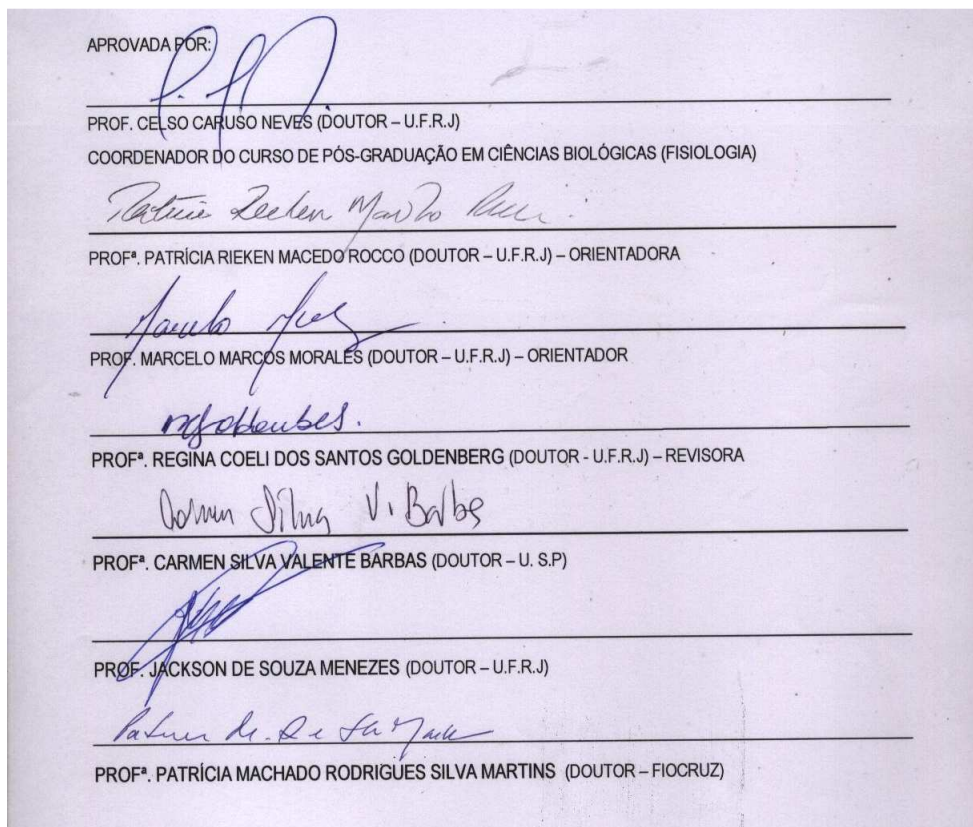 APROVADA POR:
PROF. CELSO CARUSO NEVES (DOUTOR – U.F.R.J)
COORDENADOR DO CURSO DE PÓS-GRADUAÇÃO EM CIÊNCIAS BIOLÓGICAS (FISIOLOGIA)
PROFª. PATRÍCIA RIEKEN MACEDO ROCCO (DOUTOR – U.F.R.J) – ORIENTADORA
PROF. MARCELO MARCOS MORALES (DOUTOR – U.F.R.J) – ORIENTADOR
PROFª. REGINA COELI DOS SANTOS GOLDENBERG (DOUTOR - U.F.R.J) – REVISORA
PROFª. CARMEN SILVA VALENTE BARBAS (DOUTOR – U. S.P)
PROF. JACKSON DE SOUZA MENEZES (DOUTOR – U.F.R.J)
PROFª. PATRÍCIA MACHADO RODRIGUES SILVA MARTINS (DOUTOR – FIOCRUZ)